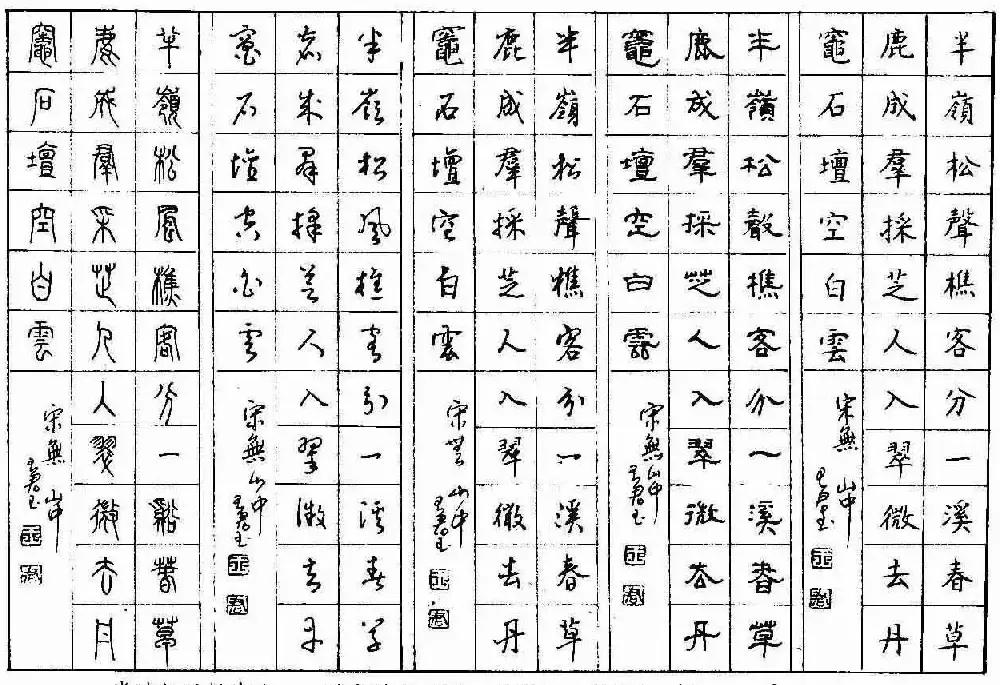 半嶺松聲樵客分一溪春草
鹿成羣採芝人入翠微去丹
竈石壇空白雲
宋無 山中
半嶺松聲樵客分一溪春草
鹿成羣採芝人入翠微去丹
竈石壇空白雲
宋無山中
半嶺松聲樵客分一溪春草
鹿成羣採芝人入翠微去丹
竈石壇空白雲
宋無 山中
半嶺松風樵客分一溪春草
鹿成羣採芝人入翠微去丹
竈石壇空白雲
宋無山中
半嶺松風樵客分一谿春草
鹿成羣采芝人入翠微去丹
竈石壇空白雲
宋無 山中